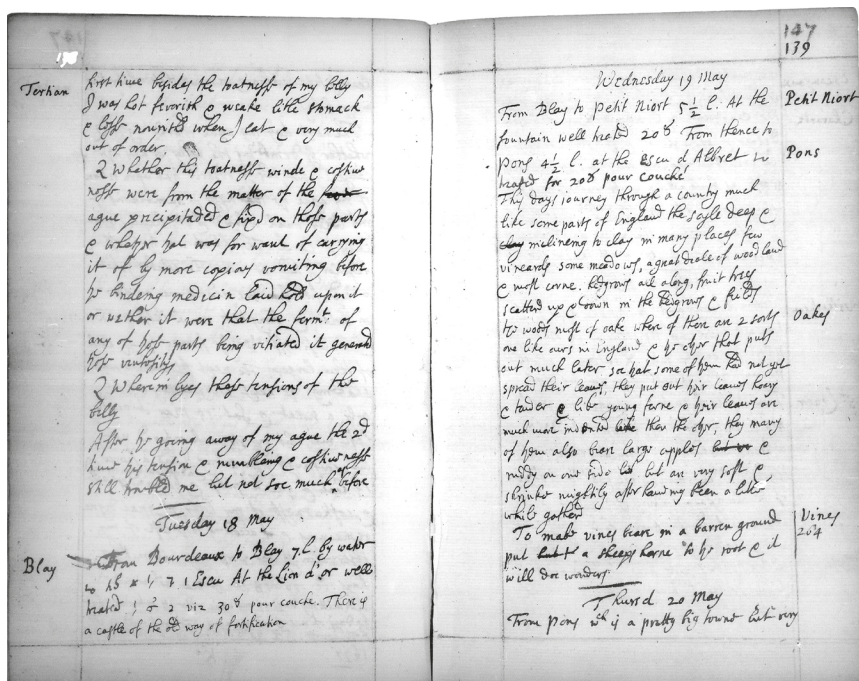 Tertian
first time besides the tatness of my belly
I was hot feverish & weake little stomack
& lesse nourishd when I eat & very much
out of order.
Q Whether this tatnesse winde & costive
nesse were from the matter of the
ague precipitated & fixd on those parts
& whether that was for want of carrying
it of by more copious vomiting before
the bindeing medicin laid hold upon it
or whether it were that the ferm: of
any of those parts being vitiated it generated
those ventositys
Q Wherein lyes those tensions of the
belly
After the going away of my ague the 2d
time this tension & rumbleing & costivenesse
still troubled me but not soe much as before
Tuesday 18 May
Blay
From Bourdeaux to Blay 7 l. by water
1 Escu At the Lion d'or well
treated 2 viz 30 pour couche. There is
a castle of the old way of fortification
147
139
Wednesday 19 May
Petit Niort
From Blay to petit Niort 5 1/2 l. At the
fountain well treated 20 From thence to
Pons
Pons 4 1/2 l. at the Escu d Albret
treated for 20 pour couché
This days journey through a country much
like some parts of England the soyle deep &
clay inclineing to clay in many places few
vineards some meadows, a great deale of wood land
& most corne. hedgrows all along, fruit trees
scatterd up & down in the hedgrows & fields
Oakes
the woods most of oake where of there are 2 sorts
one like ours in England & the other that puts
out much later soe that some of them had not yet
spread their leaves, they put out their leaves hoary
& tender & like young ferne & their leaves are
much more indented than the other, they many
of them also beare large apples &
ruddy on one side but are very soft &
shrinke mightily after haveing been a litle
while gatherd
Vines
204
To make vines beare in a barren ground
put a sheeps horne to the root & it
will doe wonders
Thursd 20 May
From Pons wch is a pretty big towne but very